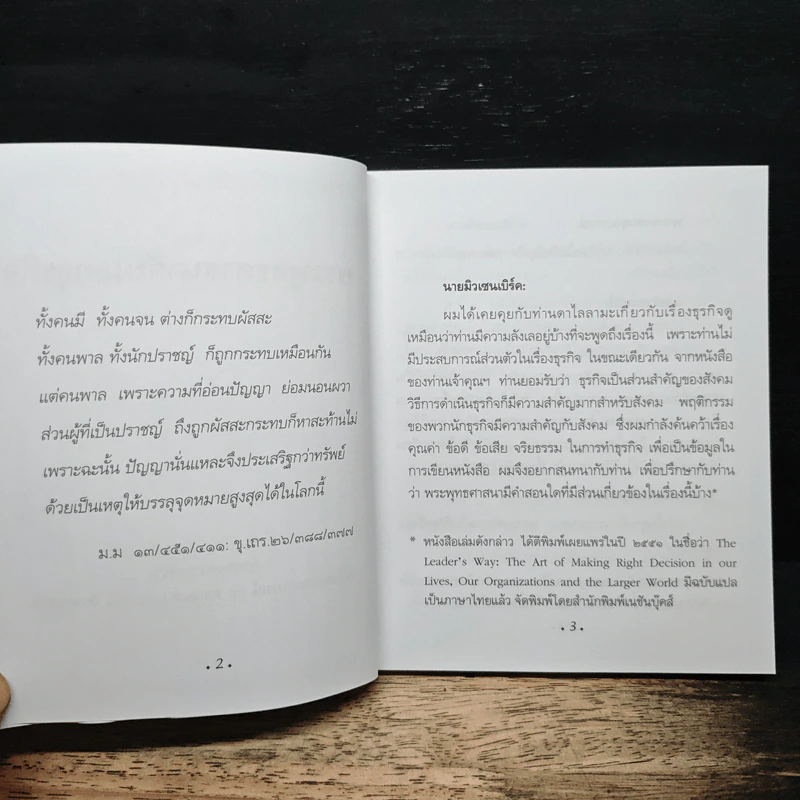 ทั้งคนมี ทั้งคนจน ต่างก็กระทบผัสสะ
ทั้งคนพาล ทั้งนักปราชญ์ ก็ถูกกระทบเหมือนกัน
แต่คนพาล เพราะความที่อ่อนปัญญา ย่อมนอนผวา
ส่วนผู้ที่เป็นปราชญ์ ถึงถูกผัสสะกระทบก็หาสะท้านไม่
เพราะฉะนั้น ปัญญานั่นแหละจึงประเสริฐกว่าทรัพย์
ด้วยเป็นเหตุให้บรรลุจุดหมายสูงสุดได้ในโลกนี้
ม.ม ๑๓/๔๕๑/๔๑๑: ขุ.เถร.๒๖/๓๘๘/๓๗๗
• 2 •
นายมิวเซนเบิร์ค:
ผมได้เคยคุยกับท่านดาไลลามะเกี่ยวกับเรื่องธุรกิจดู
เหมือนว่าท่านมีความลังเลอยู่บ้างที่จะพูดถึงเรื่องนี้ เพราะท่านไม่
มีประสบการณ์ส่วนตัวในเรื่องธุรกิจ ในขณะเดียวกัน จากหนังสือ
ของท่านเจ้าคุณฯ ท่านยอมรับว่า ธุรกิจเป็นส่วนสำคัญของสังคม
วิธีการดำเนินธุรกิจก็มีความสำคัญมากสำหรับสังคม พฤติกรรม
ของพวกนักธุรกิจมีความสำคัญกับสังคม ซึ่งผมกำลังค้นคว้าเรื่อง
คุณค่า ข้อดี ข้อเสีย จริยธรรม ในการทำธุรกิจ เพื่อเป็นข้อมูลใน
การเขียนหนังสือ ผมจึงอยากสนทนากับท่าน เพื่อปรึกษากับท่าน
ว่า พระพุทธศาสนามีคำสอนใดที่มีส่วนเกี่ยวข้องในเรื่องนี้บ้าง*
* หนังสือเล่มดังกล่าว ได้ตีพิมพ์เผยแพร่ในปี ๒๕๕๑ ในชื่อว่า The
Leader's Way: The Art of Making Right Decision in our
Lives, Our Organizations and the Larger World มีฉบับแปล
เป็นภาษาไทยแล้ว จัดพิมพ์โดยสำนักพิมพ์เนชันบุ๊คส์
• 3 •